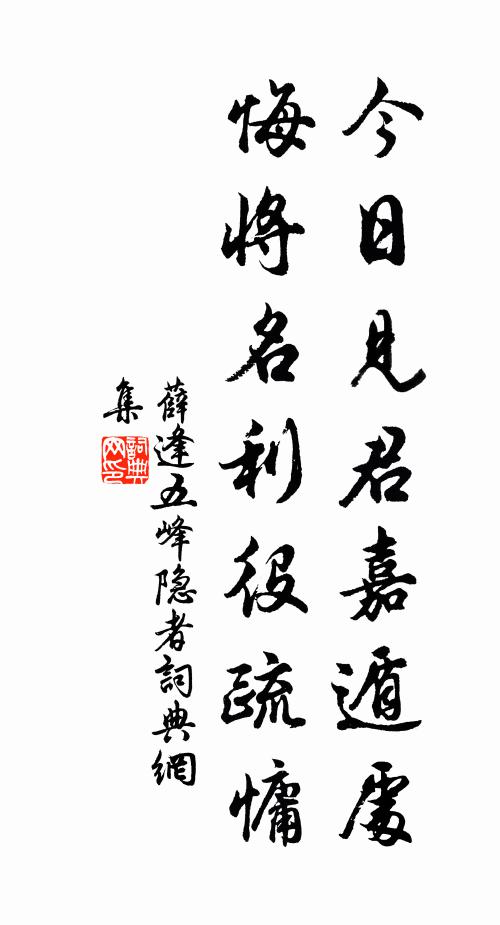 今日見君嘉遁處
悔將名利役疏慵
薛逢五峰隐者詞典網
集
詞典網印